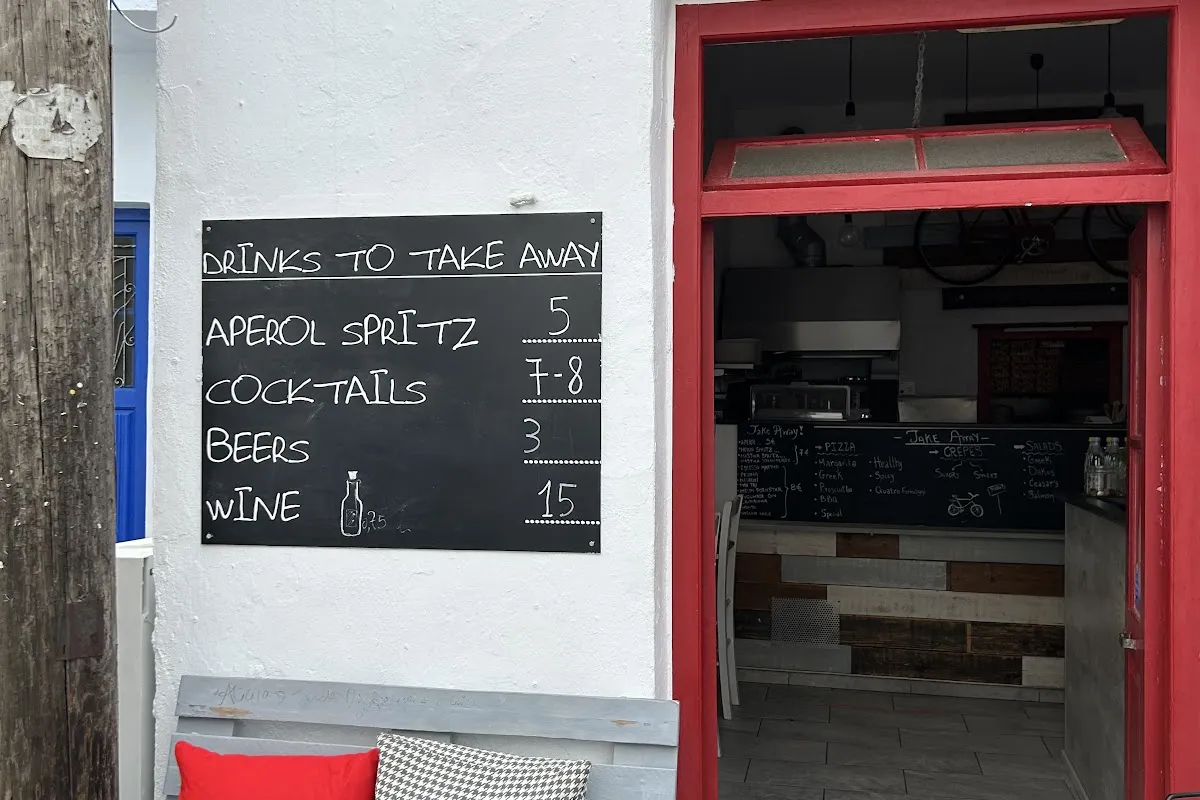 DRINKS TO TAKE AWAY
APEROL SPRITZ 5
COCKTAILS 7-8
BEERS 3
WINE 0,75 15
Take Away!
PIZZA
Margarita
Greek
Prosciutto
BBQ
Special
Healthy
Spicy
Quatro Formaggi
-TAKE AWAY-
CREPES
SWEET
SALADS
Greek
Dakos
Ceasar's
Salmon